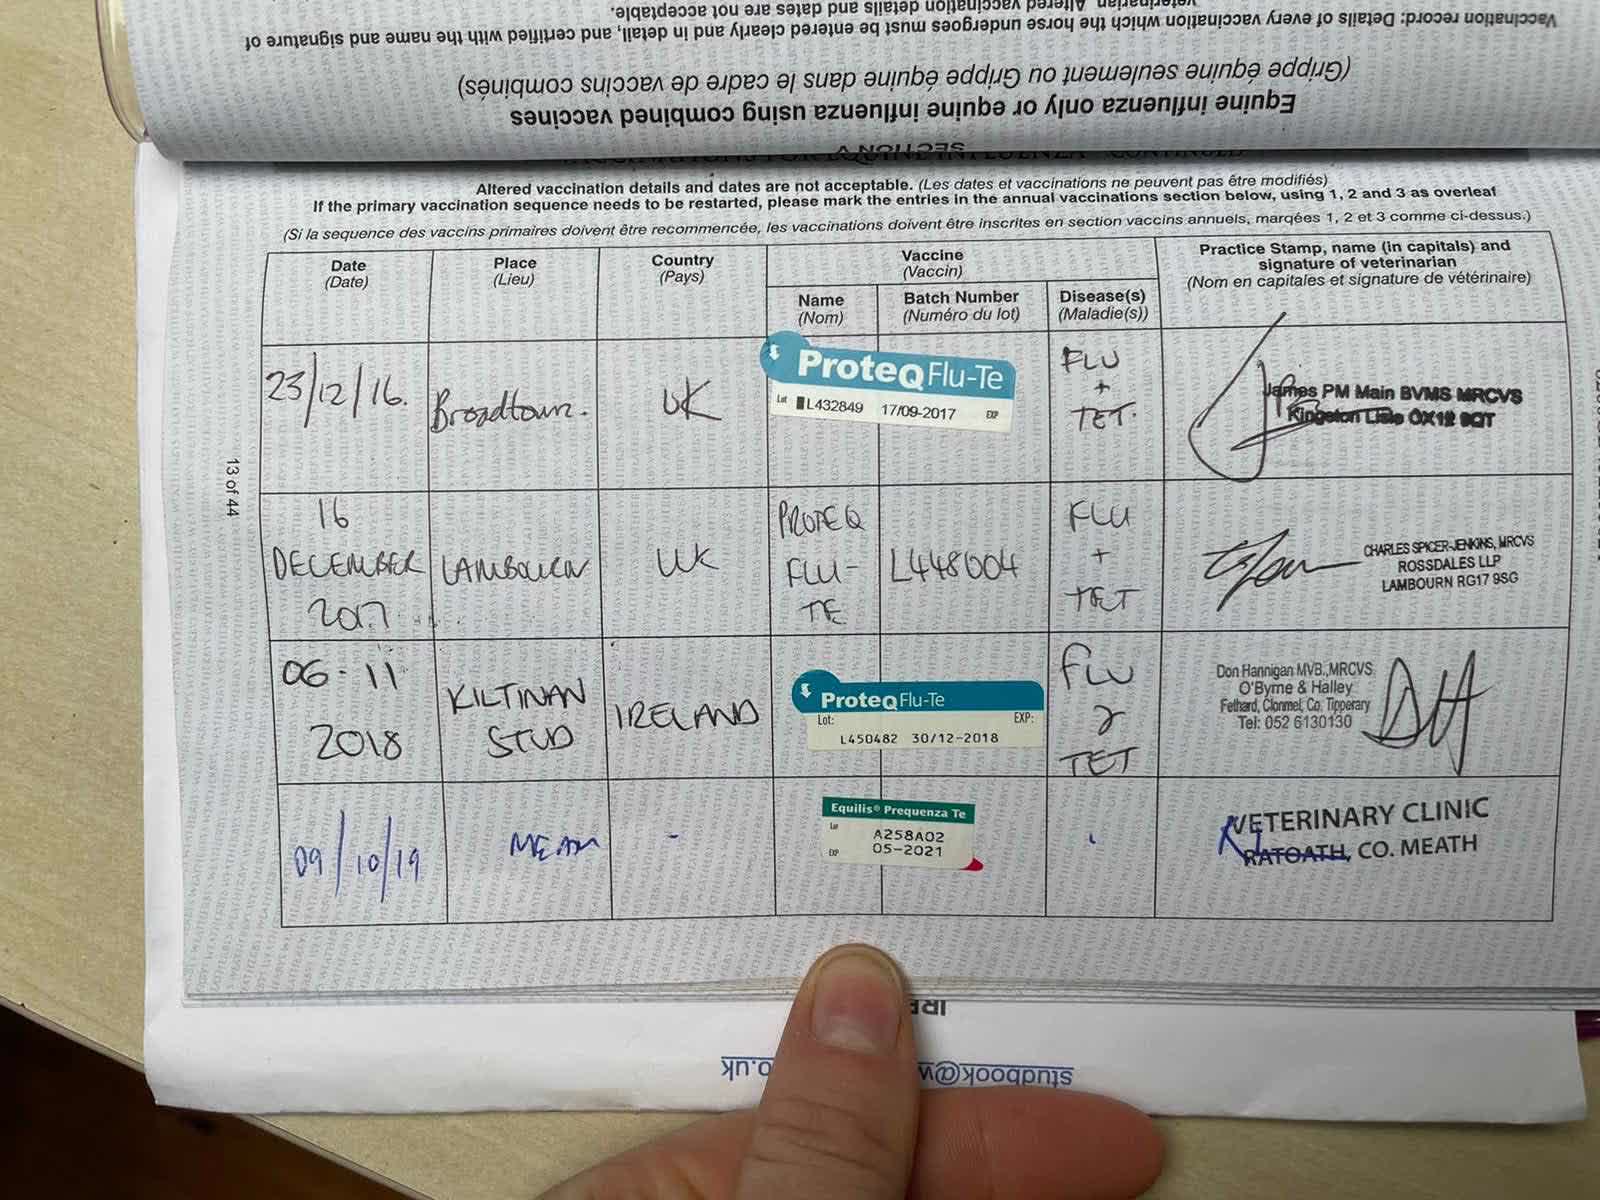 veterinarian. Altered vaccination details and dates are not acceptable.
Vaccination record: Details of every vaccination which the horse undergoes must be entered clearly and in detail, and certified with the name and signature of
(Grippe équine seulement ou Grippe équine dans le cadre de vaccins combinés)
Equine influenza only or equine influenza using combined vaccines
SECTION V
Altered vaccination details and dates are not acceptable. (Les dates et vaccinations ne peuvent pas être modifiés)
If the primary vaccination sequence needs to be restarted, please mark the entries in the annual vaccinations section below, using 1, 2 and 3 as overleaf
(Si la sequence des vaccins primaires doivent être recommencée, les vaccinations doivent être inscrites en section vaccins annuels, marqées 1, 2 et 3 comme ci-dessus.)
Date
(Date)
Place
(Lieu)
Country
(Pays)
Vaccine
(Vaccin)
Name
(Nom)
Batch Number
(Numéro du lot)
Disease(s)
(Maladie(s))
Practice Stamp, name (in capitals) and
signature of veterinarian
(Nom en capitales et signature de vétérinaire)
23/12/16.
Broadtown.
UK
ProteqFlu-Te
Lot L432849 17/09-2017 EXP
FLU
+
TET.
James PM Main BVMS MRCVS
Kingston Lisle OX12 9QT
13 of 44
16
DECEMBER
2017
LAMBOURN
UK
PROTEQ
FLU-
TE
L448004
FLU
+
TET
CHARLES SPICER-JENKINS, MRCVS
ROSSDALES LLP
LAMBOURN RG17 9SG
06-11
2018
KILTINAN
STUD
IRELAND
ProteqFlu-Te
Lot: EXP:
L450482 30/12-2018
FLU
&
TET
Don Hannigan MVB.,MRCVS
O'Byrne & Halley
Fethard, Clonmel, Co. Tipperary
Tel: 052 6130130
09/10/19
MEATH
-
Equilis® Prequenza Te
Lot A258A02
EXP 05-2021
VETERINARY CLINIC
RATOATH, CO. MEATH
IRE
studbook@w
o.uk